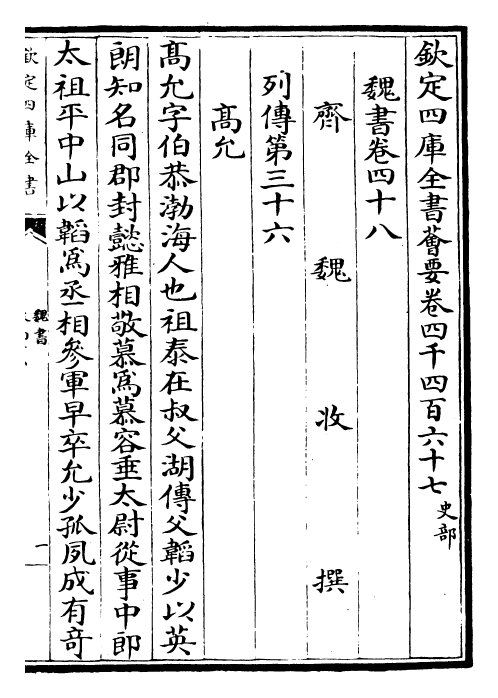 欽定四庫全書薈要卷四千四百六十七 史部
魏書卷四十八
齊 魏 收 撰
列傳第三十六
高允
高允字伯恭渤海人也祖泰在叔父湖傳父韜少以英
朗知名同郡封懿雅相敬慕爲慕容垂太尉從事中郎
太祖平中山以韜爲丞相參軍早卒允少孤夙成有奇
欽定四庫全書
魏書
一